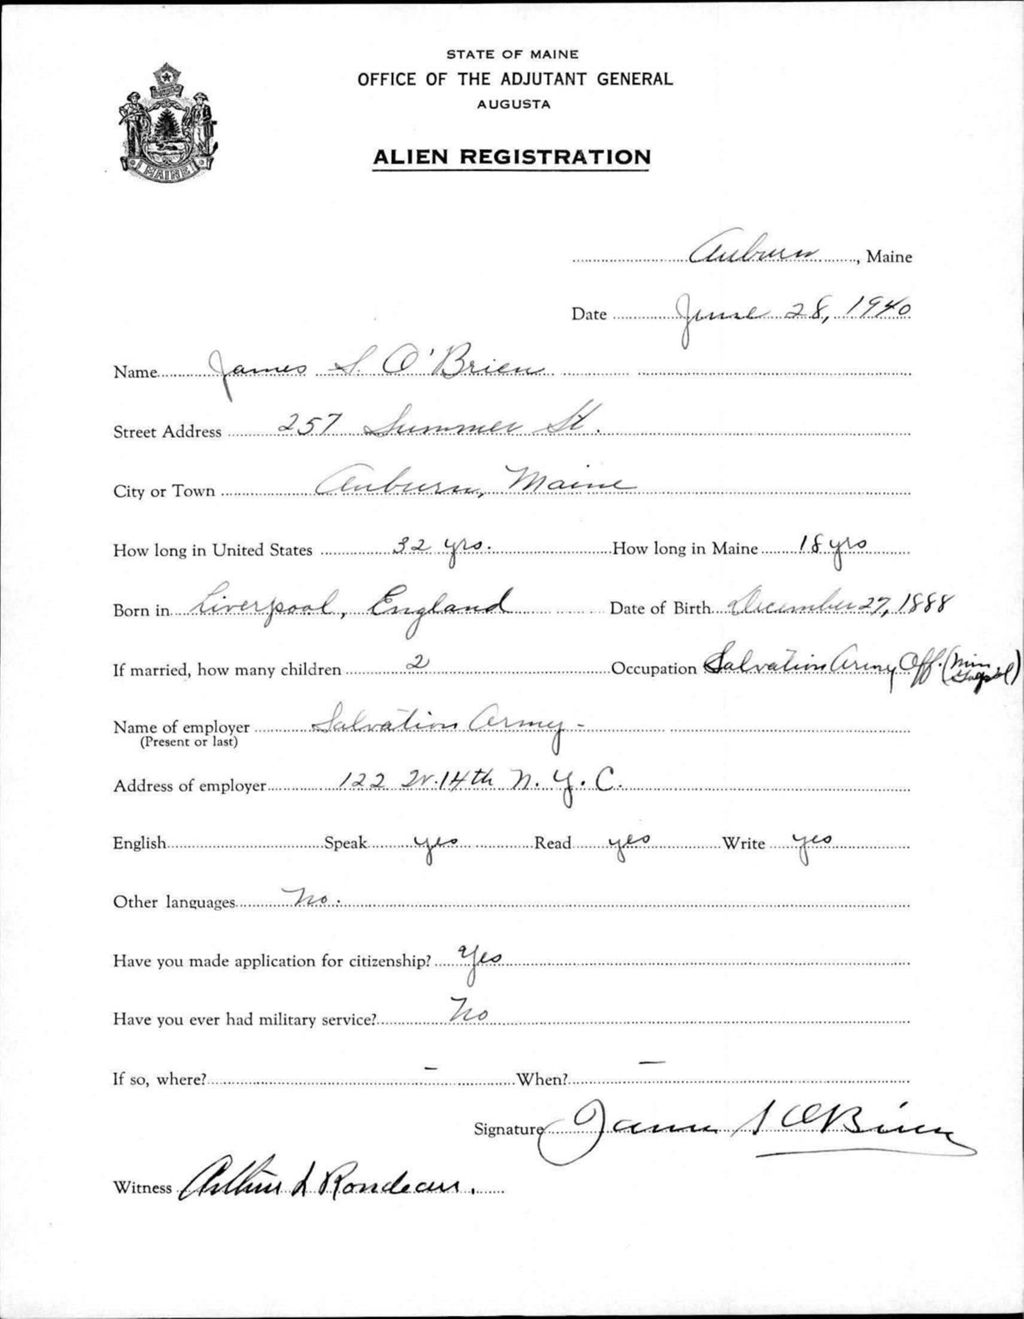 STATE OF MAINE
OFFICE OF THE ADJUTANT GENERAL
AUGUSTA
ALIEN REGISTRATION
MAINE
Auburn, Maine
Date June 28, 1940
Name James S. O'Brien
Street Address 257 Summer St.
City or Town Auburn, Maine
How long in United States 32 yrs. How long in Maine 18 yrs
Born in Liverpool, England Date of Birth December 27, 1888
If married, how many children 2 Occupation Salvation Army Off. (Min Gospel)
Name of employer Salvation Army -
(Present or last)
Address of employer 122 W. 14th N.Y.C.
English Speak yes Read yes Write yes
Other languages No.
Have you made application for citizenship? Yes
Have you ever had military service? No
If so, where? - When? -
Signature James S O'Brien
Witness Arthur L Rondeau.